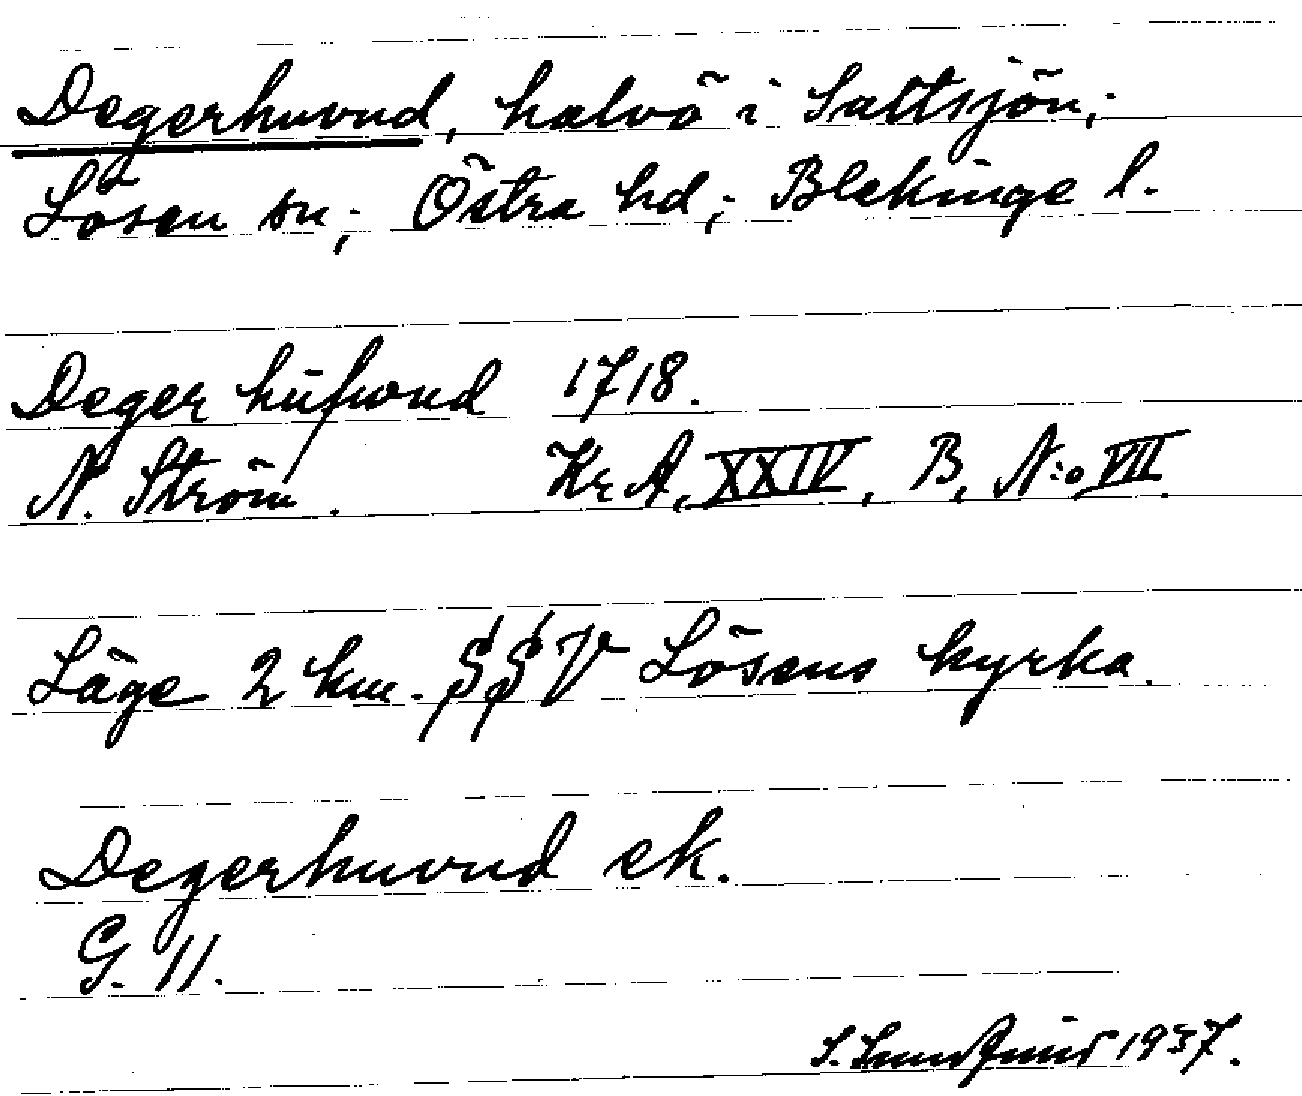 Degerhuvud, halvö i Saltsjön;
Lösen sn; Östra hd; Blekinge l.
Deger hufwud 1718.
N. Ström. Kr A, XXIV, B, N:o VII.
Läge 2 km. SSV Lösens kyrka.
Degerhuvud ek.
G. 11.
S. 1937.